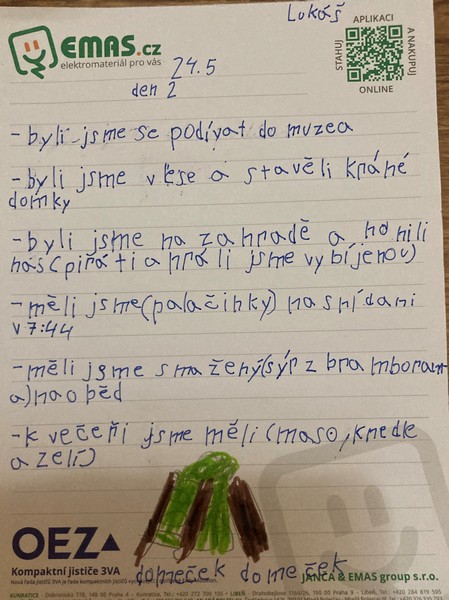 Lukáš
EMAS.CZ
elektromateriál pro vás
STAHUJ
APLIKACI
A NAKUPUJ
ONLINE
24.5
den 2
- byli jsme se podívat do muzea
- byli jsme v lese a stavěli kráné
domky
- byli jsme na zahradě a honili
nás (piráti a hráli jsme vybíjenou)
- měli jsme (palačinky) na snídani
v 7:44
- měli jsme smažený (sýr z bramboram
a) na oběd
- k večeři jsme měli (maso, knedle
a zelí)
OEZ
Kompaktní jističe 3VA
domeček domeček
JANČA & EMAS group s.r.o.